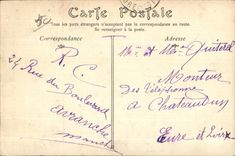 Carte Postale
Tous les pays étrangers n'acceptent pas la correspondance au recto.
Se renseigner à la poste.
Correspondance
Adresse
R. C.
24 Rue du Boulevard
Avranche
Manche
Mr et Mme
Monteur
des Téléphones
à Châteaudun
Eure et Loir